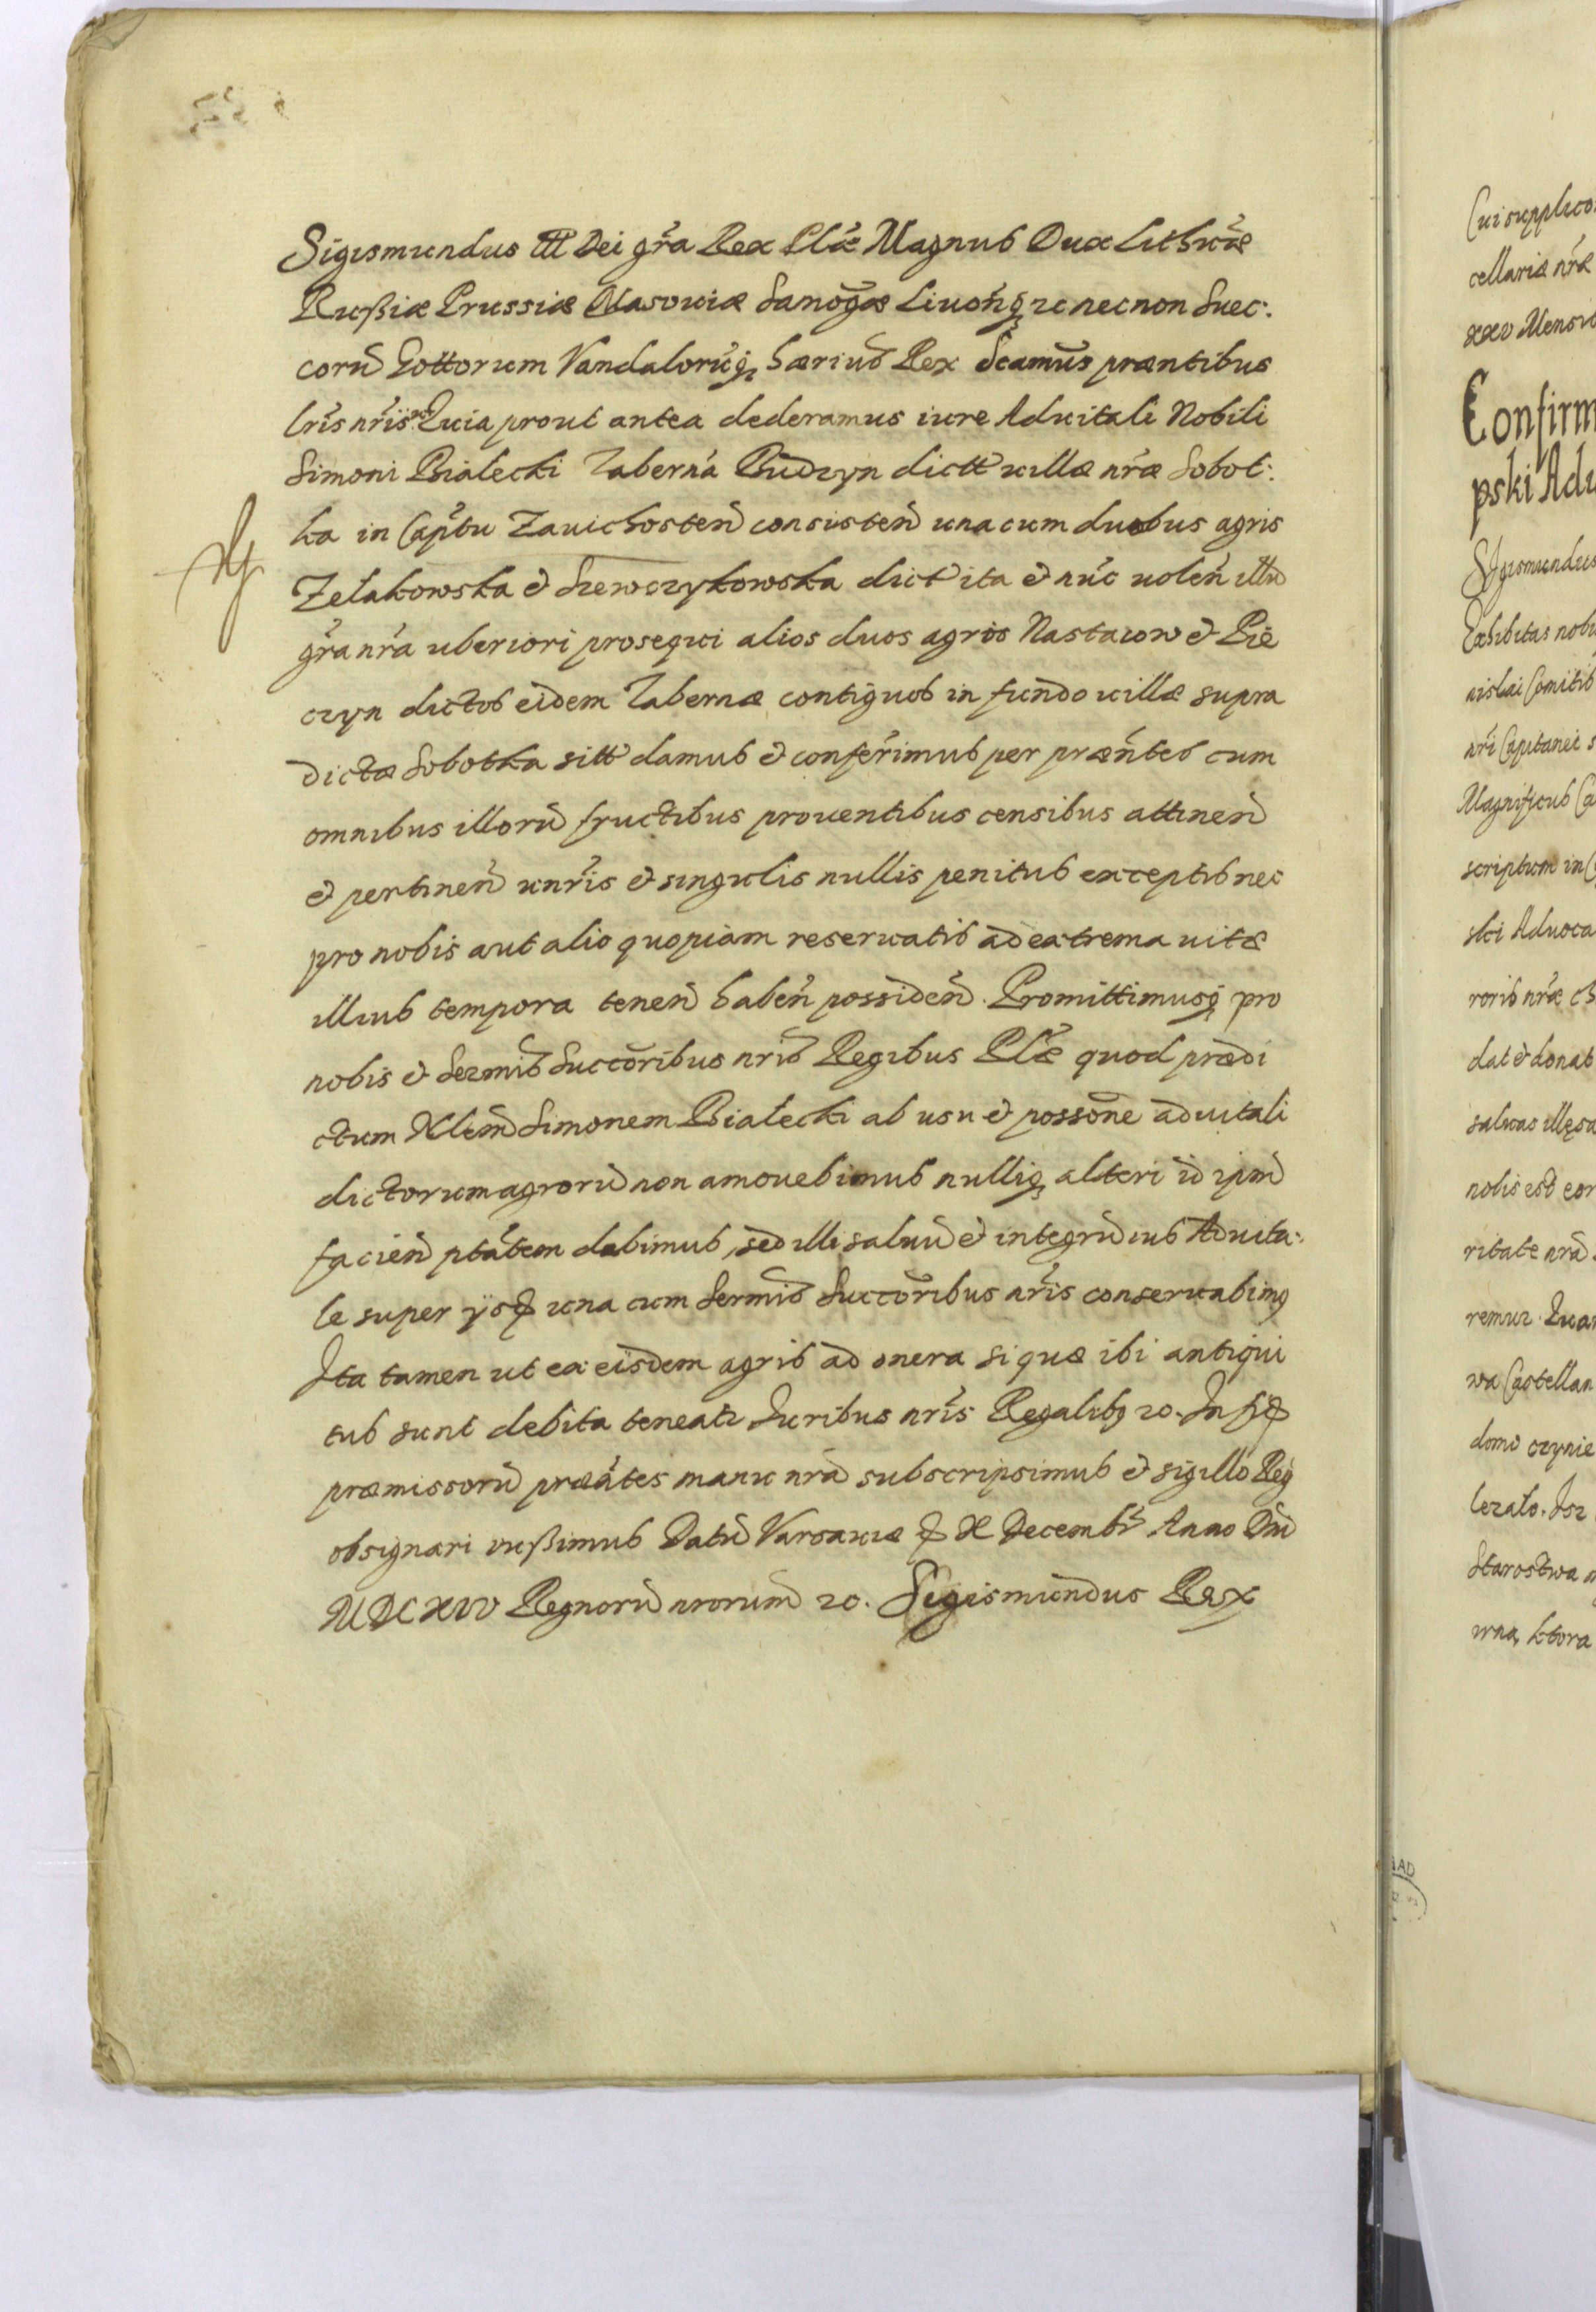 Sigismundus III Dei gra͂ Rex Plæ Magnus Dux Lithuæ
Rußiæ Prussiæ Masouiæ Samog͂æ Liuonqꝫ ꝛc necnon Suec:
coru͂ Gottorum Vandaloru͂qꝫ hærius Rex Scamus præntibus
lr͂is nr͂is Quia prout antea dederamus iure Aduitali Nobili
Simoni Białecki Taberna Budzyn dictt uillæ nræ Sobot:
ka in Captu Zauichosten͂ consisten͂ una cum duobus agris
Zelakowska & Szewczykowska dict ita & nu͂c uolen͂ illu͂
gr͂a nr͂a uberiori prosequi alios duos agros Nastaiow & Pie
czyn dictos eidem Tabernæ contiguos in fundo uillæ supra
dictæ Sobotka sitt damus & conferimus per præn͂tes cum
omnibus illoru͂ fructibus prouentibus censibus attinen͂
& pertinen͂ unr͂is & singulis nullis penitus exceptis nec
pro nobis aut alio quopiam reseruatis ad extrema uitæ
illius tempora tenen͂ haben͂ possiden͂. Promittimusqꝫ pro
nobis & Sermis Succoribus nr͂is Regibus Plæ quod prædi
ctum Nlem Simonem Białecki ab usu & possone aduitali
dictorum agroru͂ non amouebimus nulliqꝫ alteri id ipm͂
facien͂ ptatem dabimus, sed illi saluu͂ & integru͂ ius Aduita:
le super ijsd una cum Sermis Succoribus nr͂is conseruabimꝰ
Ita tamen ut ex eisdem agris ad onera si quæ ibi antiqui
tus sunt debita teneatr Iuribus nr͂is Regalibꝰ ꝛc. In fid
præmissoru͂ præntes manu nra͂ subscripsimus & sigillo Reg
obsignari iußimus Datu͂ Varsauiæ d X Decembr Anno Dni͂
MDCXIV Regnoru͂ nrorum ꝛc. Sigismundus Rex
Cui supplica
cellariæ nræ
xxv Mensis
Confirm
pski Adu
Sigismundus
Exhibitas nobi
nislai Comitis
nri Capitanei s
Magnificus Ca
scriptum in C
ski Aduoca
roris nræ ch
dat & donat
saluas illęsa
nobis esd eor
ritate nra͂
remur. Quar
wa Castellan
domo czynie
lezało. Isz
Starostwa
wna, ktora